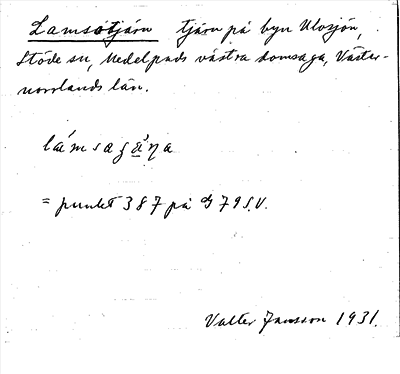 Lamsötjärn tjärn på byn Ulvsjön,
Stöde sn, Medelpads västra domsaga, Väster-
norrlands län.
= punkt 387 på G 79 S.V.
Valter Jansson 1931.